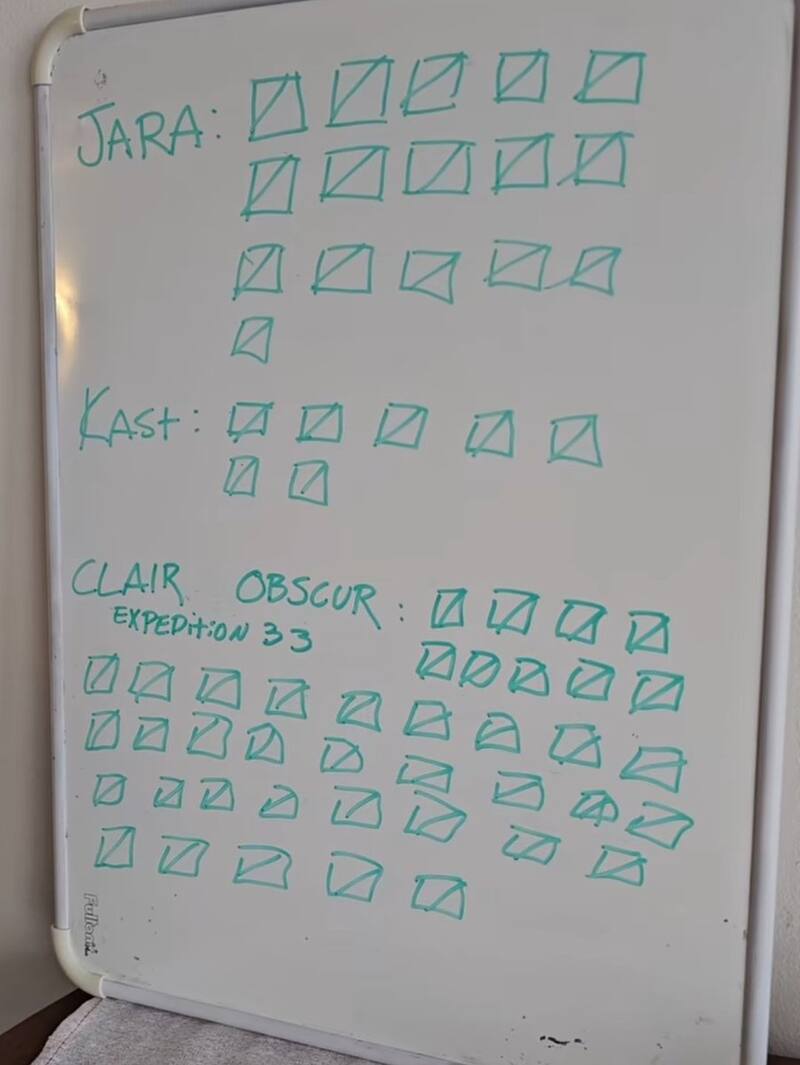 JARA:
KAST:
CLAIR OBSCUR:
EXPEDITION 33